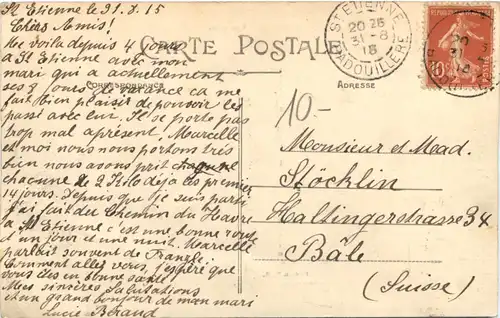 St Etienne le 31.8.15
Chers Amis!
Me voila depuis 4 jours
CARTE POSTALE
a St Etienne avec mon
mari qui a actuellement
ses 8 jours de vacance ca me
CORRESPONDANCE
fait bien plaisir de pouvoir les
passé avec lui. Il se porte pas
trop mal aprésent. Marcelle
et moi nous nous portons très
bien nous avons prit chaqune
chacune de 2 Kilo déja les premier
14 jours. Depuis que je suis parti
j'ai fait du Chemin du Havre
a St Etienne c'est une bonne
et un jour et une nuit. Marcelle
parlait souvent de
Comment allez vous, j'espére que
vous êtes en bonne santé
Mes sincéres Salutations
et un grand bonjour de mon mari
Lucie
ADRESSE
ST ETIENNE
BADOUILLERE
20 
31 -8
15
REPUBLIQUE FRANCAISE
10
10-
Monsieur et Mad.
Stöcklin
Haltingerstrasse 34
Bâle
(Suisse)